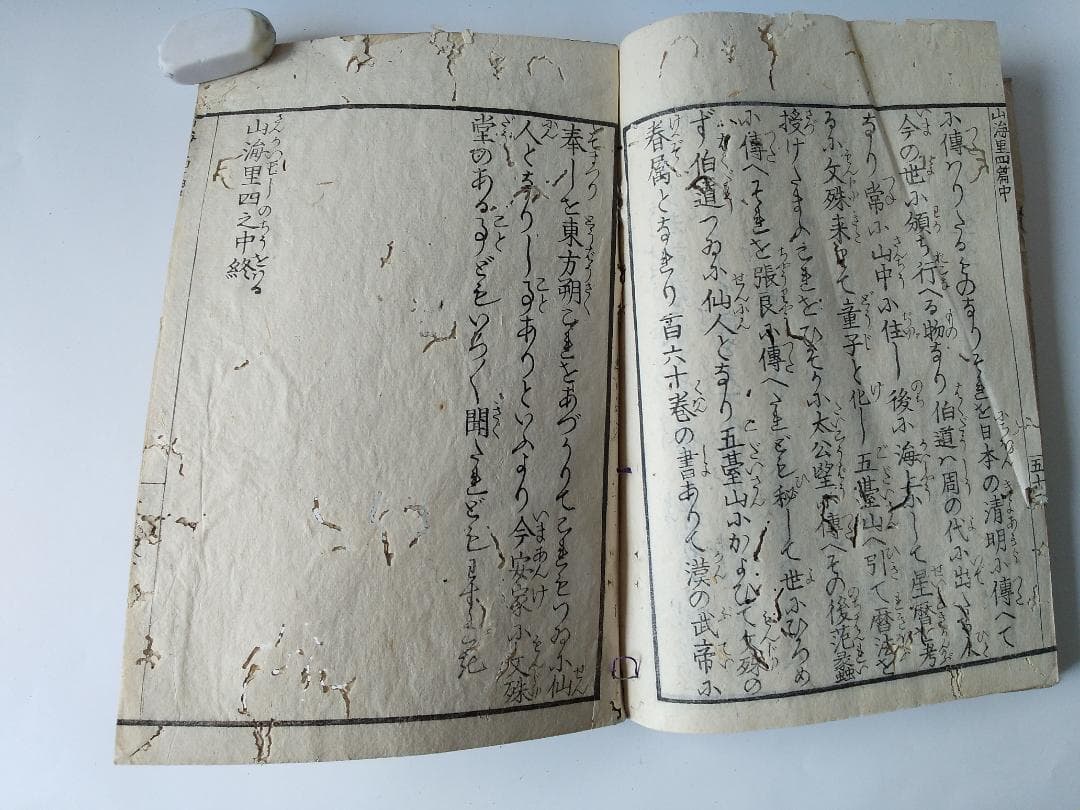 山海里四篇中
五十二
小傳はりたるものなりそれを日本の清明小傳へて
今の世小頒ち行へる物なり伯道ハ周の代小出
なり常小山中小住し後小海上小して星暦を考
る小文殊来りて童子と化し五臺山へ引て暦法を
授けたまふこれをひそか小太公望小傳へその後范蠡
小傳へそれを張良小傳へたれども秘して世小ひろめ
ず伯道つゐ小仙人となり五臺山小かよひて文殊の
眷属となれり百六十巻の書ありて漢の武帝小
奉りしを東方朔これをあづかりてこれもつゐ小仙
人となりしるありといふより今安家小文殊
堂のあるるどもいろく聞たれども
山海里四之中終